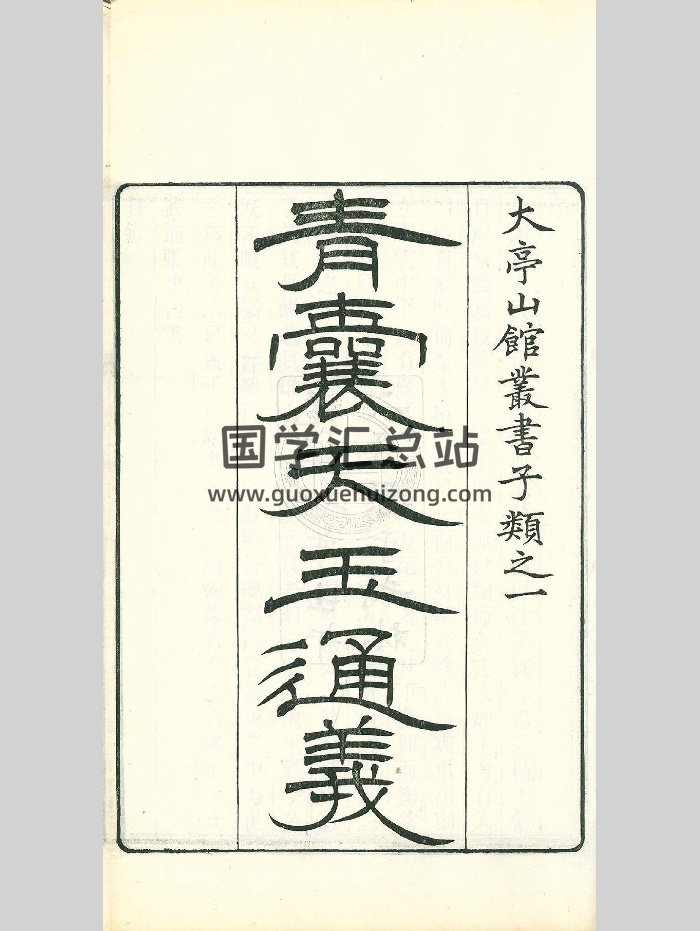 大亭山館叢書子類之一
青囊天玉通義
国学汇总站
www.guoxuehuizong.com